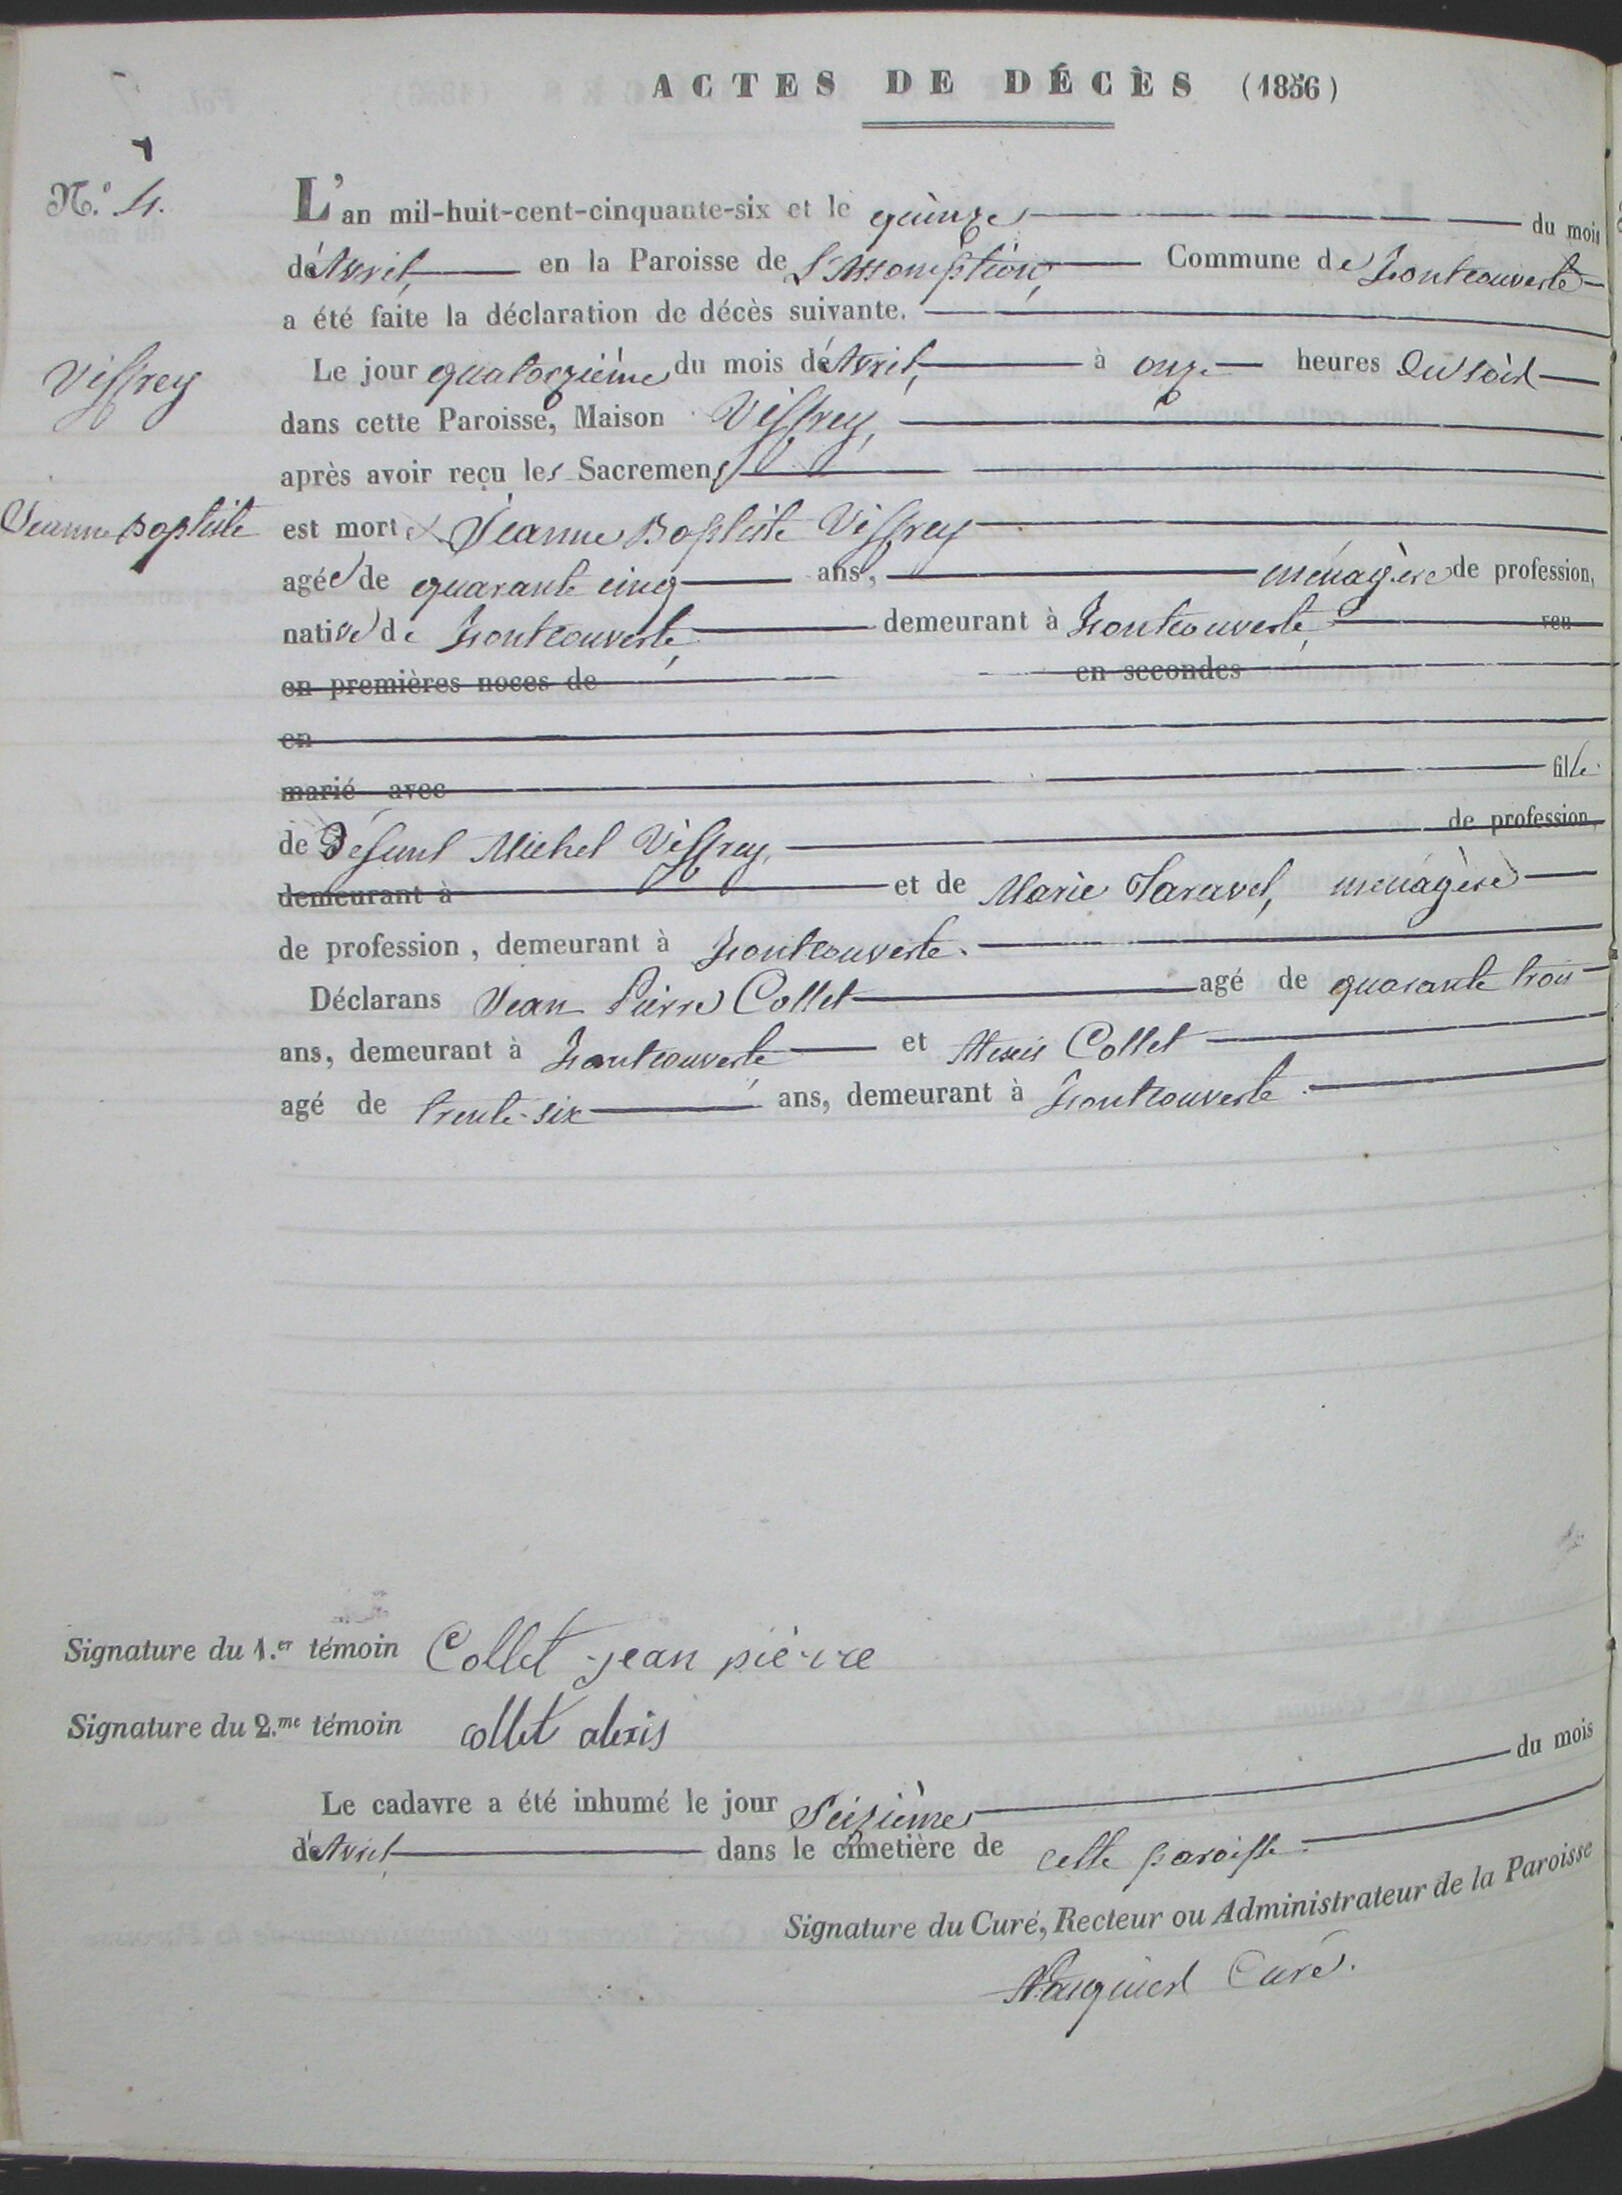 ACTES DE DÉCÈS (1856)
N.º 4.
L'an mil-huit-cent-cinquante-six et le quinze du mois
d'Avril, en la Paroisse de L'Assomption, Commune de Fontcouverte
a été faite la déclaration de décès suivante.
Viffrey
Le jour quatorzième du mois d'Avril, à onze heures du soir
dans cette Paroisse, Maison Viffrey,
après avoir reçu les Sacremens
Jeanne Baptiste
est morte Jeanne Baptiste Viffrey
agée de quarante cinq ans, ménagère de profession,
native de Fontcouverte, demeurant à Fontcouverte, veu
en premières noces de en secondes
en
marié avec fille
de Défunt Michel Viffrey, de profession,
demeurant à et de Marie Taravel, ménagère
de profession, demeurant à Fontcouverte.
Déclarans Jean Pierre Collet agé de quarante trois
ans, demeurant à Fontcouverte et Alexis Collet
agé de trente-six ans, demeurant à Fontcouverte.
Signature du 1.er témoin Collet jean pierre
Signature du 2.me témoin collet alexis
Le cadavre a été inhumé le jour Seizième du mois
d'Avril dans le cimetière de cette paroisse.
Signature du Curé, Recteur ou Administrateur de la Paroisse
Curé.